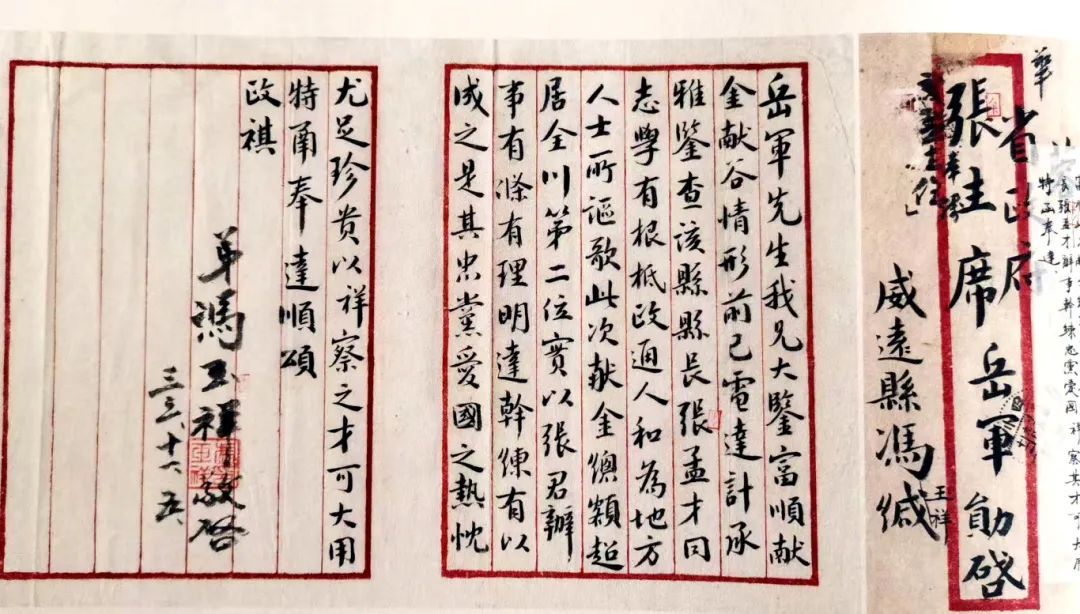 華
省政府
張主席岳軍勛啓
威遠縣馮玉祥緘
特函奉達
岳軍先生我兄大鑒富順獻
金献谷情形前已電達計承
雅鑒查該縣縣長張孟才同
志學有根柢政通人和為地方
人士所謳歌此次献金總額超
居全川第二位實以張君辦
事有條有理明達幹練有以
成之是其忠黨愛國之熱忱
尤足珍貴以祥察之才可大用
特甬奉達順頌
政祺
弟馮玉祥敬啓
三三、十一、五